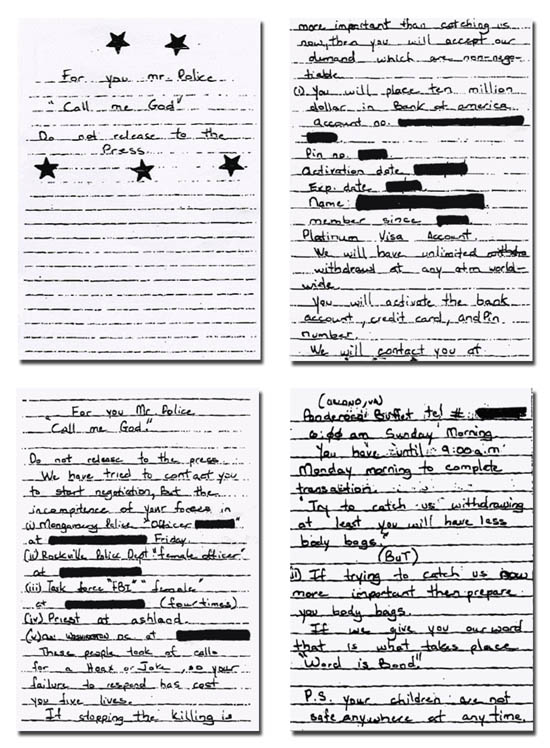 For you mr. Police
"Call me God"
Do not release to the
Press
For you Mr. Police
"Call me God."
Do not release to the press
We have tried to contact you
to start negotiation, But the
incompitence of your forces in
(i) Mongomery Police "Officer
at Friday
(ii) Rockville Police Dept. "female officer"
at
(iii) Task force "FBI" "female"
at (four times)
(iv) Priest at ashland.
(v) CNN WASHINGTON DC at
These people took of calls
for a Hoax or Joke, so your
failure to respond has cost
you five lives.
If stopping the killing is
more important than catching us
now, then you will accept our
demand which are non-nego-
tiable.
(i) You will place ten million
dollar in Bank of america
account no.
Pin no.
Activation date
Exp. date
Name:
member since
Platinum Visa Account
We will have unlimited withdra
withdrawl at any atm world-
wide.
You will activate the bank
account, credit card, and Pin
number.
We will contact you at
(ORLAND, VA)
Ponderosa Buffet tel #
6:00 am Sunday Morning
You have until 9:00 a.m
Monday morning to complete
transaction.
"Try to catch us withdrawing
at least you will have less
body bags."
(BuT)
(ii) If trying to catch us now
more important then prepare
you body bags.
If we give you our word
that is what takes place
"Word is Bond."
P.S. your children are not
safe anywhere at any time.